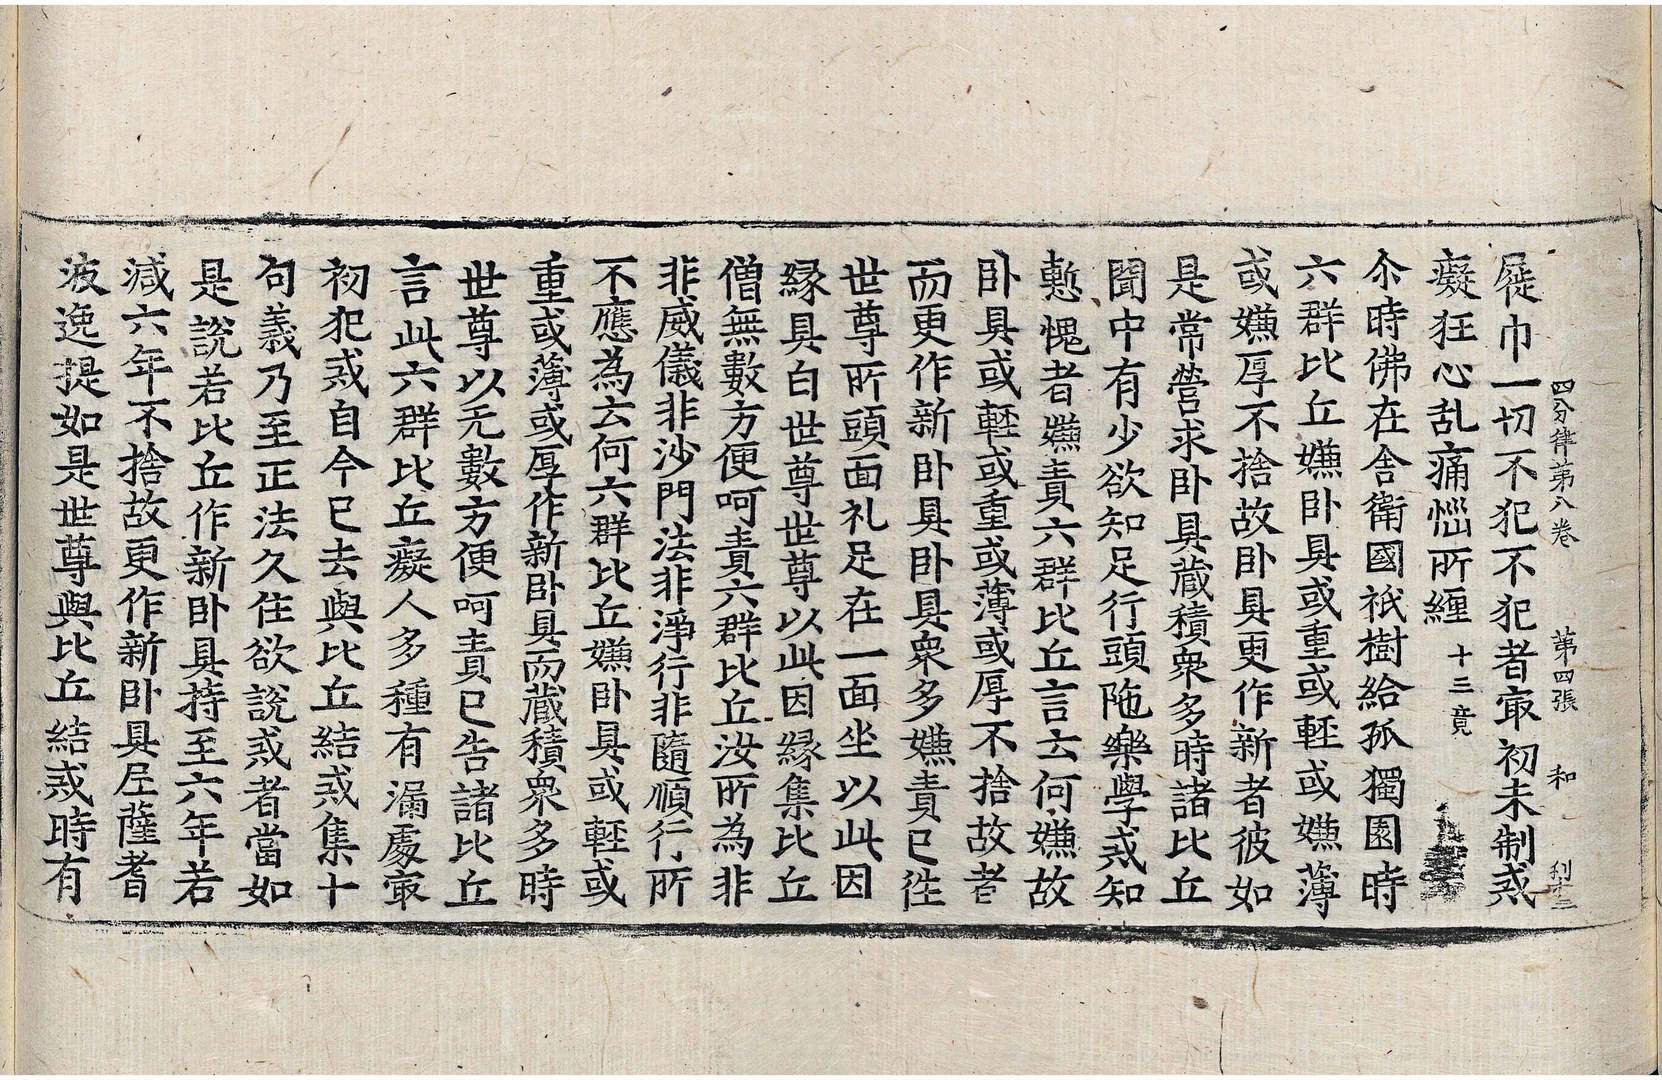 四分律第八卷 第四張 和
屣巾一切不犯不犯者㝡初未制戒
癡狂心乱痛惱所纏 十三竟
尒時佛在舍衛國祇樹給孤獨園時
六群比丘嫌卧具或重或輕或嫌薄
或嫌厚不捨故卧具更作新者彼如
是常營求卧具藏積衆多時諸比丘
聞中有少欲知足行頭陁樂學戒知
慙愧者嫌責六群比丘言云何嫌故
卧具或輕或重或薄或厚不捨故者
而更作新卧具卧具衆多嫌責已往
世尊所頭面礼足在一面坐以此因
縁具白世尊世尊以此因縁集比丘
僧無數方便呵責六群比丘汝所為非
非威儀非沙門法非淨行非隨順行所
不應為云何六群比丘嫌卧具或輕或
重或薄或厚作新卧具而藏積衆多時
世尊以无數方便呵責已告諸比丘
言此六群比丘癡人多種有漏處㝡
初犯戒自今已去與比丘結戒集十
句義乃至正法久住欲說戒者當如
是說若比丘作新卧具持至六年若
減六年不捨故更作新卧具尼薩耆
波逸提如是世尊與比丘結戒時有